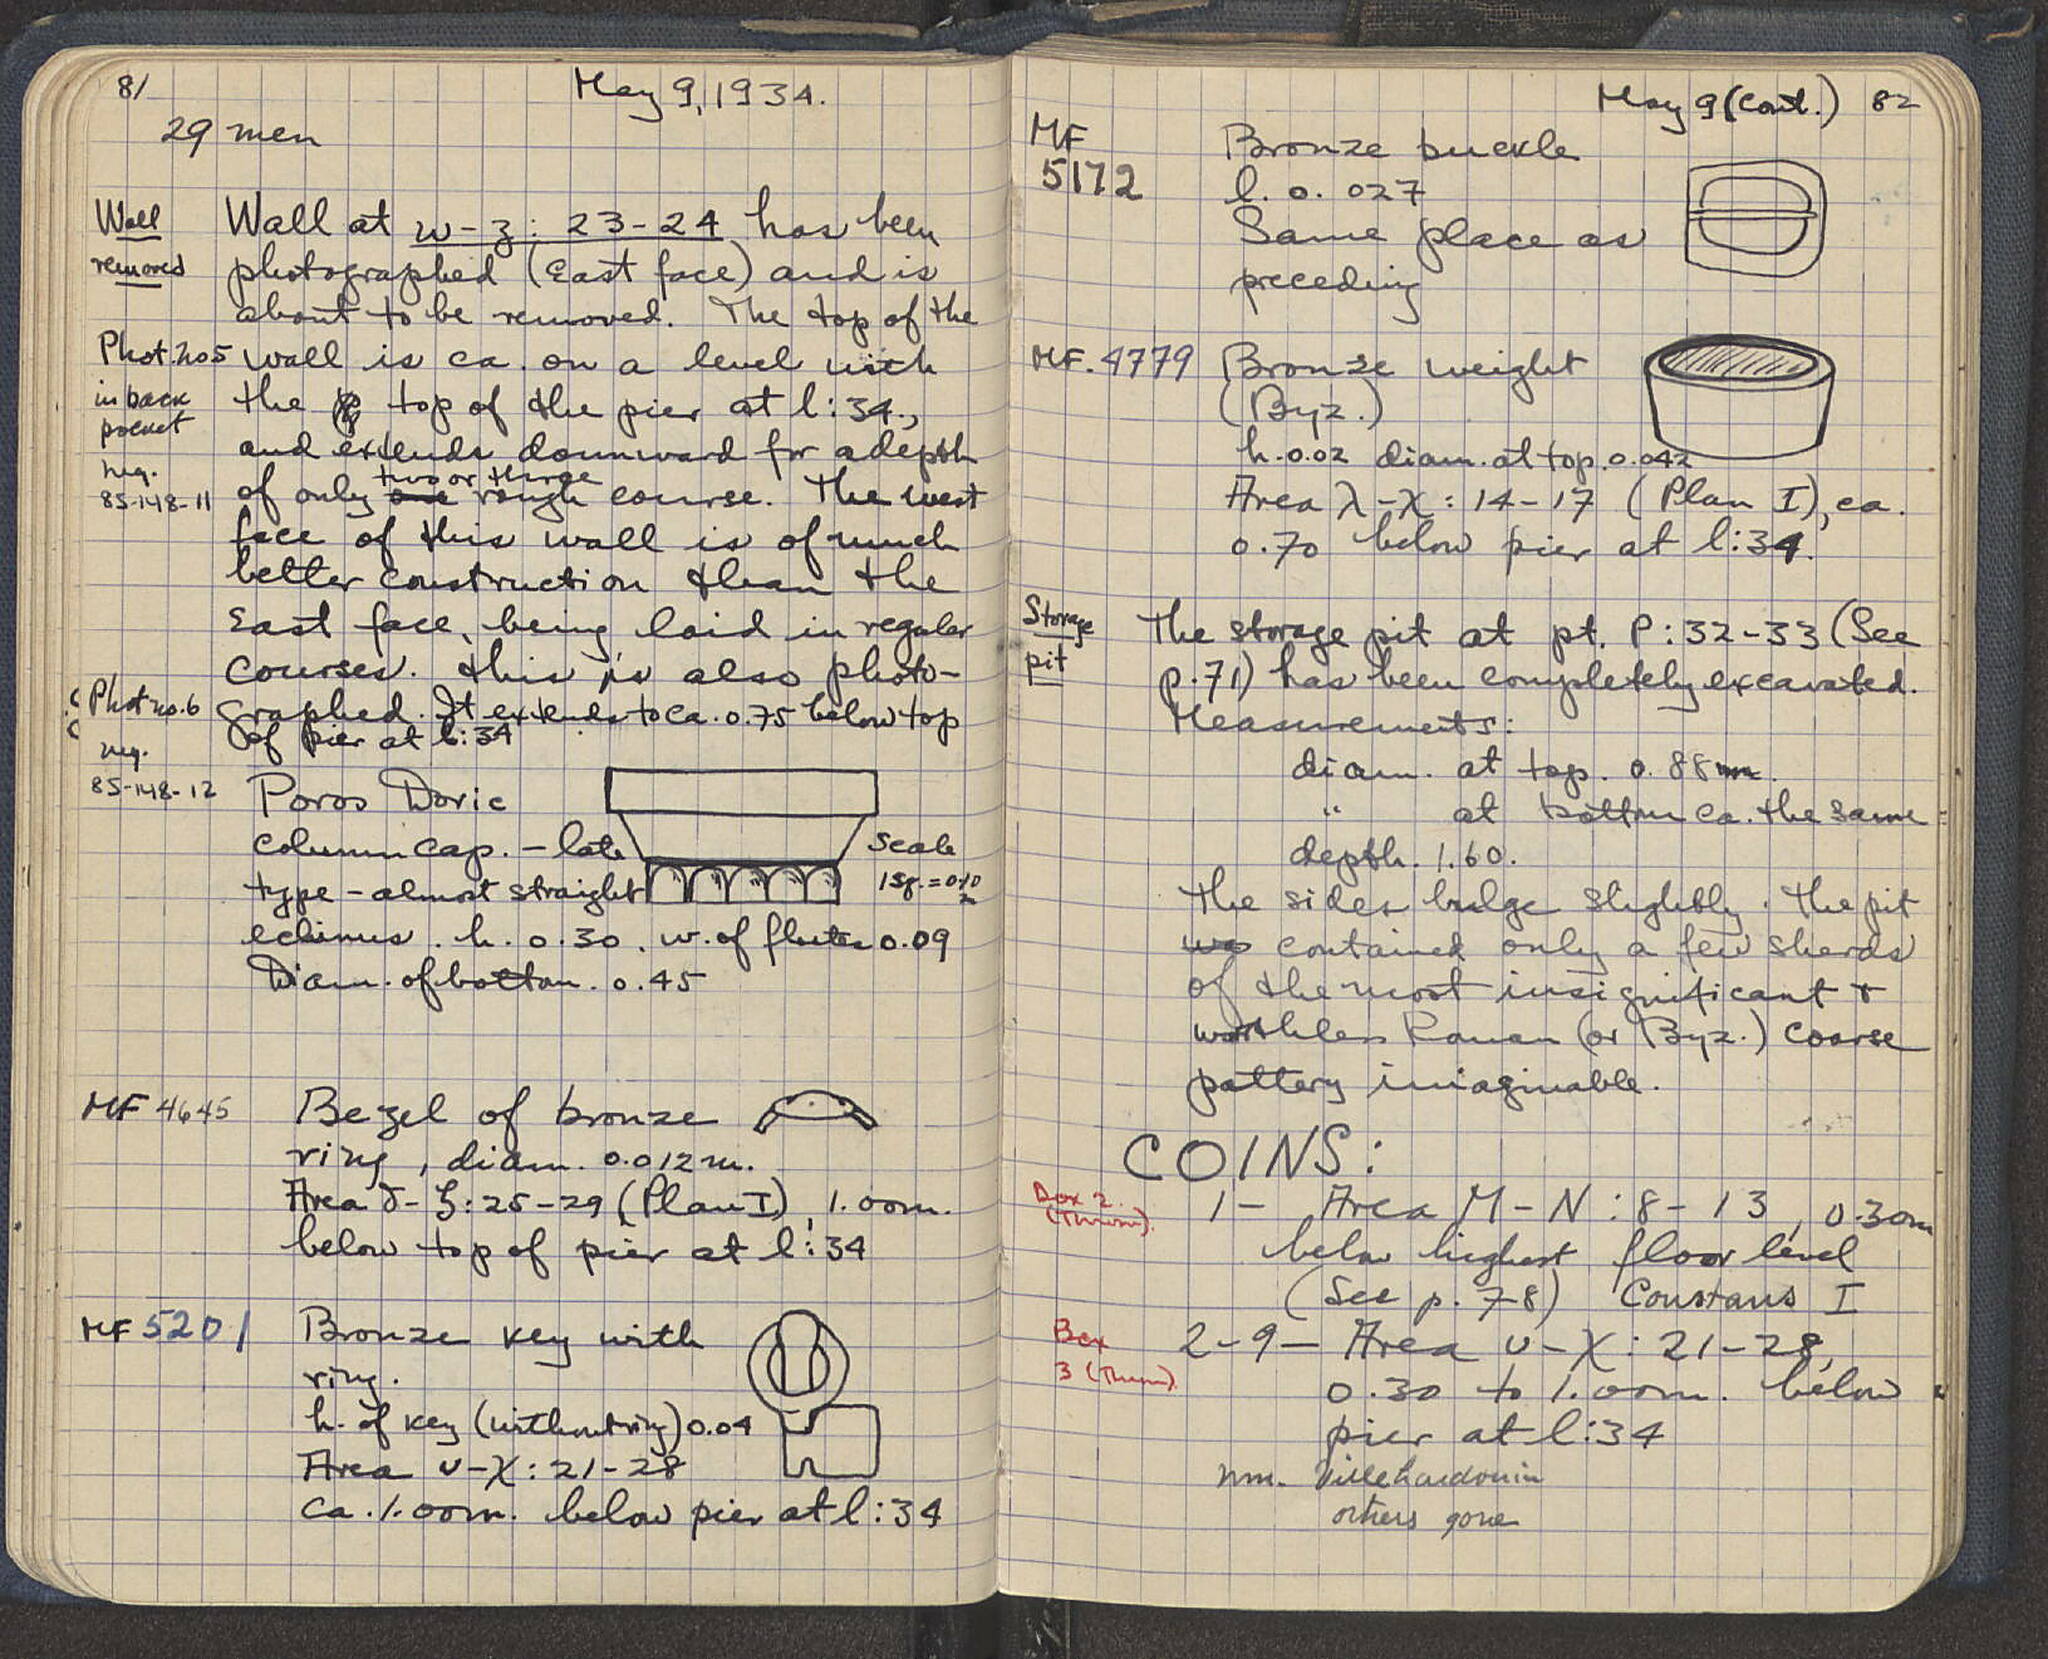 81
May 9, 1934.
29 men
Wall
removed
Wall at w-z: 23-24 has been
photographed (East face) and is
about to be removed. The top of the
Phot. no 5
in back
pocket
neg.
85-148-11
wall is ca. on a level with
the top of the pier at l:34,
and extends downward for a depth
of only one two or three rough course. The west
face of this wall is of much
better construction than the
East face, being laid in regular
courses. This is also photo-
Phot no. 6
neg.
85-148-12
graphed. It extends to ca. 0.75 below top
of pier at l:34
Poros Doric
column cap. - late
type - almost straight
echinus. h. 0.30. w. of flutes 0.09
Diam. of bottom. 0.45
Scale
1 sq. = 0.10
m
MF 4645
Bezel of bronze
ring, diam. 0.012 m.
Area δ-ζ: 25-29 (Plan I), 1.00m.
below top of pier at l:34
MF 5201
Bronze key with
ring.
h. of key (without ring) 0.04
Area υ-χ: 21-28
ca. 1.00m. below pier at l:34
May 9 (cont.) 82
MF
5172
Bronze buckle
l. 0.027
Same place as
preceding
MF. 4779
Bronze weight
(Byz.)
h. 0.02 diam. at top. 0.042
Area λ-χ: 14-17 (Plan I), ca.
0.70 below pier at l:34.
Storage
pit
The storage pit at pt. P: 32-33 (See
p. 71) has been completely excavated.
Measurements:
diam. at top. 0.88 m.
" at bottom ca. the same
depth. 1.60.
The sides bulge slightly. The pit
was contained only a few sherds
of the most insignificant &
worthless Roman (or Byz.) coarse
pottery imaginable.
COINS:
Box 2.
(Thrown).
1 - Area M-N: 8-13, 0.30m
below highest floor level
(See p. 78) Constans I
Box
3 (Thrown).
2-9 - Area υ-χ: 21-28,
0.30 to 1.00m. below
pier at l:34
nm. Villehardouin
others gone